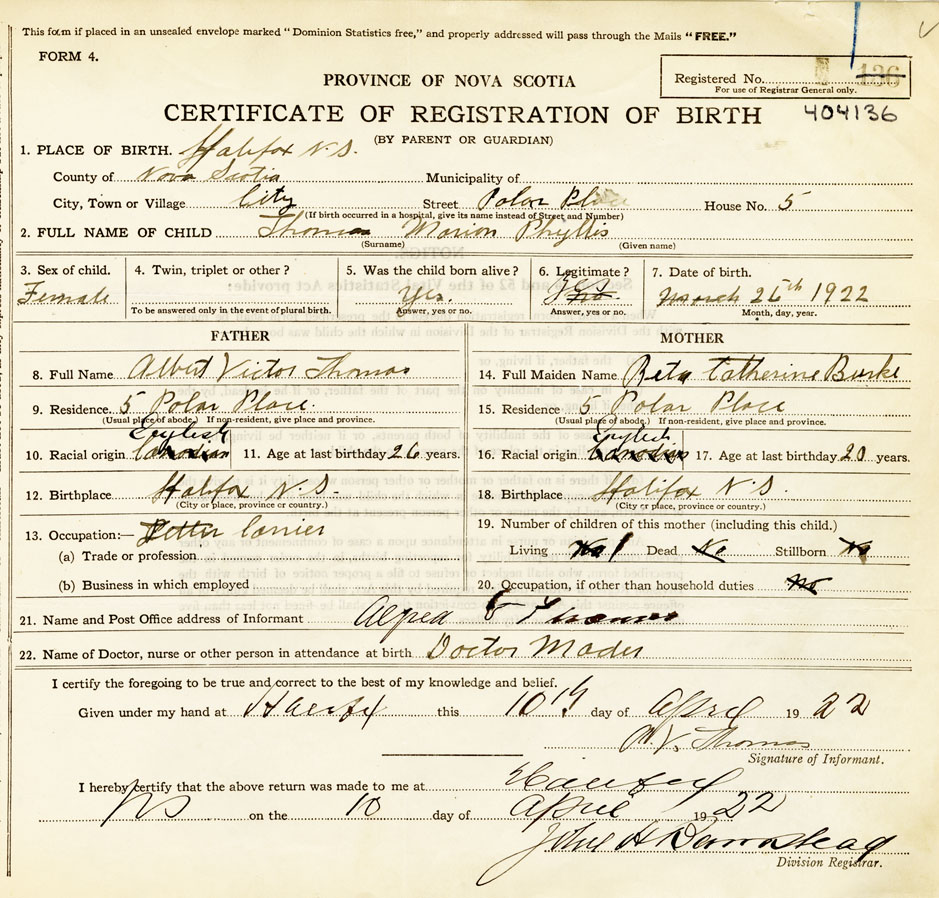 This form if placed in an unsealed envelope marked "Dominion Statistics free," and properly addressed will pass through the Mails "FREE."
FORM 4.
PROVINCE OF NOVA SCOTIA
Registered No. 136
For use of Registrar General only.
CERTIFICATE OF REGISTRATION OF BIRTH 404136
(BY PARENT OR GUARDIAN)
1. PLACE OF BIRTH. Halifax N.S.
County of Nova Scotia Municipality of
City, Town or Village City Street Polar Place House No. 5
(If birth occurred in a hospital, give its name instead of Street and Number)
2. FULL NAME OF CHILD Thomas Marion Phyllis
(Surname) (Given name)
3. Sex of child. 4. Twin, triplet or other? 5. Was the child born alive? 6. Legitimate? 7. Date of birth.
Female Yes. Yes no March 26th 1922
To be answered only in the event of plural birth. Answer, yes or no. Answer, yes or no. Month, day, year.
FATHER MOTHER
8. Full Name Albert Victor Thomas 14. Full Maiden Name Reta Catherine Burke
9. Residence. 5 Polar Place. 15. Residence 5 Polar Place
(Usual place of abode.) If non-resident, give place and province. (Usual place of abode.) If non-resident, give place and province.
English English
10. Racial origin Canadian 11. Age at last birthday 26 years. 16. Racial origin Canadian 17. Age at last birthday 20 years.
12. Birthplace Halifax N.S. 18. Birthplace Halifax N.S.
(City or place, province or country.) (City or place, province or country.)
13. Occupation:— Letter Carrier 19. Number of children of this mother (including this child.)
(a) Trade or profession Living 1 Dead No Stillborn No
(b) Business in which employed 20. Occupation, if other than household duties No
21. Name and Post Office address of Informant Thomas
22. Name of Doctor, nurse or other person in attendance at birth Doctor Mader
I certify the foregoing to be true and correct to the best of my knowledge and belief.
Given under my hand at Halifax this 10th day of April 1922
A.V. Thomas
Signature of Informant.
I hereby certify that the above return was made to me at Halifax
NS on the 10 day of April 1922
John H Barnstead
Division Registrar.